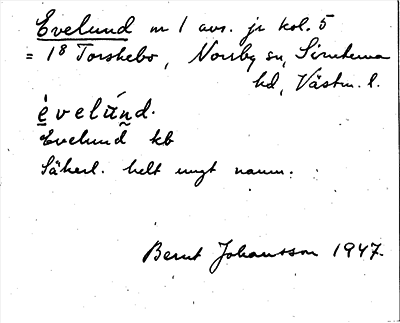 Evelund m 1 avs. jr kol. 5
= 1⁸ Torskebo, Norrby sn, Simtuna
hd, Västm. l.
èvelúnd.
Evelund kb
Säkerl. helt ungt namn.
Bernt Johansson 1947.